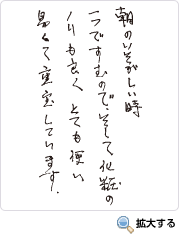 朝のいそがしい時
一つですむので、そして化粧の
ノリも良く とても使い
易くて重宝しています。
拡大する